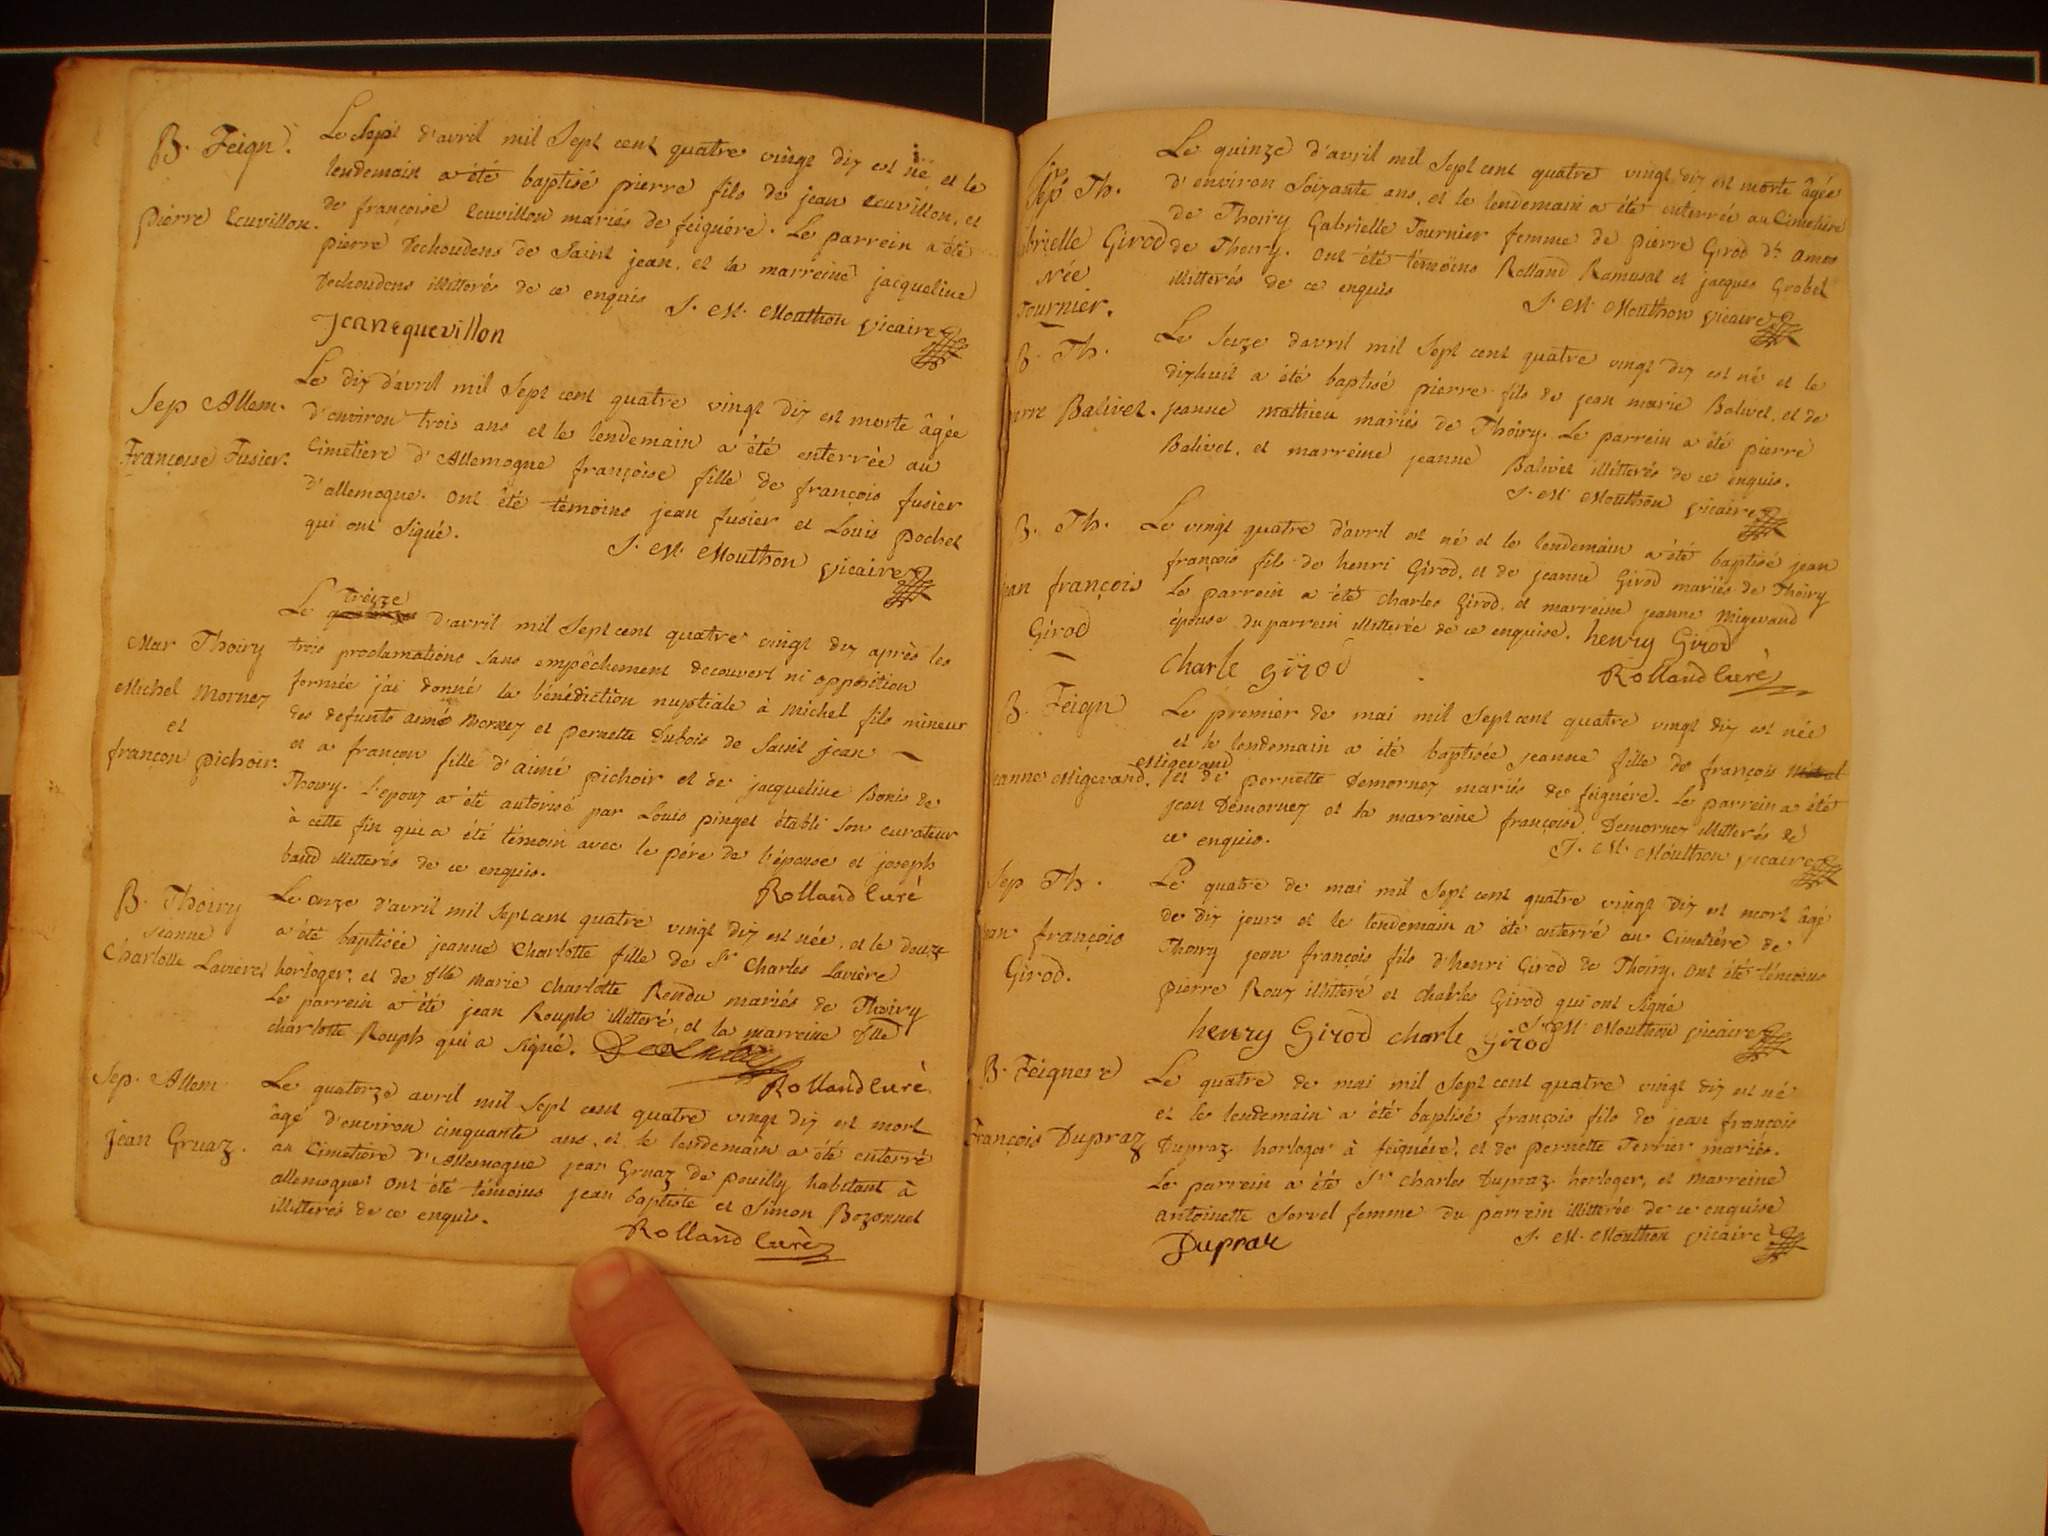 B. Feign.
Pierre Ecuvillon.
Le Sept d'avril mil Sept cent quatre vingt dix est né et le
lendemain a été baptisé pierre fils de jean Ecuvillon, et
de françoise Ecuvillon mariés de feiguére. Le parrein a été
pierre Dechoudens de Saint jean, et la marreine jacqueline
Dechoudens illitterés de ce enquis J. M. Mouthon vicaire
Jean equevillon
Sep Allem.
Françoise Fusier.
Le dix d'avril mil Sept cent quatre vingt dix est morte âgée
d'environ trois ans et le lendemain a été enterrée au
Cimetiere d'Allemogne françoise fille de françois fusier
d'allemogne. ont été témoins jean fusier et Louis pochet
qui ont Signé. J. M. Mouthon vicaire
Mar Thoiry
Michel Mornex
et
françon pichoir.
treize
Le d'avril mil Sept cent quatre vingt dix après les
trois proclamations sans empêchement decouvert ni opposition
formée j'ai donné la bénédiction nuptiale à Michel fils mineur
des defunts aimé Mornex et pernette Dubois de Saint jean
et a françon fille d'aimé pichoir et de jacqueline Bonis de
Thoiry. L'epoux a été autorisé par Louis pinget établi Son curateur
à cette fin qui a été témoin avec le pére de l'épouse et joseph
baud illitterés de ce enquis.
Rolland Curé
B. Thoiry
Jeanne
Charlotte Laviere
Le onze d'avril mil Sept cent quatre vingt dix est née, et le douze
a été baptisée jeanne Charlotte fille de Sr Charles Laviere
horloger, et de Dlle Marie Charlotte Rendu mariés de Thoiry
Le parrein a été jean Rouph illitteré, et la marreine Dlle
charlotte Rouph qui a Signé.
Rolland Curé
Sep. Allem
jean Gruaz.
Le quatorze avril mil Sept cent quatre vingt dix est mort
âgé d'environ cinquante ans, et le lendemain a été enterré
au Cimetiere d'Allemogne jean Gruaz de pouilly habitant à
allemogne. Ont été témoins jean baptiste et Simon Bozonnet
illitterés de ce enquis.
Rolland Curé
Sep Th.
brielle Girod
Née
Tournier.
Le quinze d'avril mil Sept cent quatre vingt dix est morte âgée
d'environ Soixante ans, et le lendemain a été enterrée au Cimetiére
de Thoiry Gabrielle Tournier femme de pierre Girod dt amos
de Thoiry. Ont été témoins Rolland Ramusat et jacques Grobel
illitterés de ce enquis J. M. Mouthon vicaire
B. Th.
erre Balivet.
Le Seize d'avril mil Sept cent quatre vingt dix est né et le
dixhuit a été baptisé pierre fils de jean marie Balivet, et de
jeanne mathieu mariés de Thoiry. Le parrein a été pierre
Balivet, et marreine jeanne Balivet illitterés de ce enquis.
J. M. Mouthon vicaire
B. Th.
jean françois
Girod
Le vingt quatre d'avril est né et le lendemain a été baptisé jean
françois fils de henri Girod, et de jeanne Girod mariés de Thoiry
Le parrein a été Charles Girod, et marreine jeanne Migerand
épouse du parrein illitterée de ce enquise. henry Girod
Charle girod Rolland Curé
B. Feign
eanne Migerand.
Le premier de mai mil Sept cent quatre vingt dix est née
et le lendemain a été baptisée jeanne fille de françois
Migerand
et de pernette Demornex mariés de feiguére. Le parrein a été
jean Demornex et la marreine françoise Demornex illitterés de
ce enquis. J. M. Mouthon vicaire
Sep Th.
jean françois
Girod.
Le quatre de mai mil Sept cent quatre vingt dix est mort âgé
de dix jours et le lendemain a été enterré au Cimetiére de
Thoiry jean françois fils d'henri Girod de Thoiry. Ont été témoins
pierre Roux illitteré et Charles Girod qui ont Signé
henry Girod charle girod J. M. Mouthon vicaire
B. Feiguere
François Dupraz
Le quatre de mai mil Sept cent quatre vingt dix est né
et le lendemain a été baptisé françois fils de jean françois
Dupraz horloger à feiguére, et de pernette Terrier mariés.
Le parrein a été Sr Charles Dupraz horloger, et marreine
antoinette Servel femme du parrein illitterée de ce enquise
Dupraz J. M. Mouthon vicaire